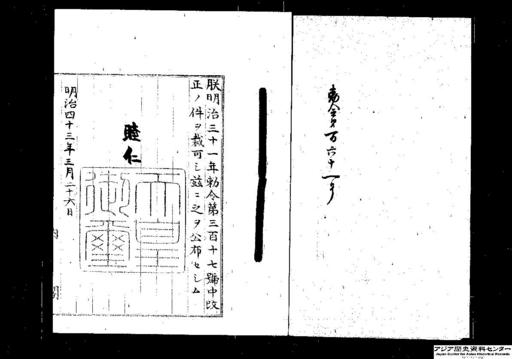 勅令第百六十一号
朕明治三十一年勅令第三百十七號中改
正ノ件ヲ裁可シ茲ニ之ヲ公布セシム
睦仁
天皇御璽
明治四十三年三月二十六日
内閣
アジア歴史資料センター
Japan Center for Asian Historical Records